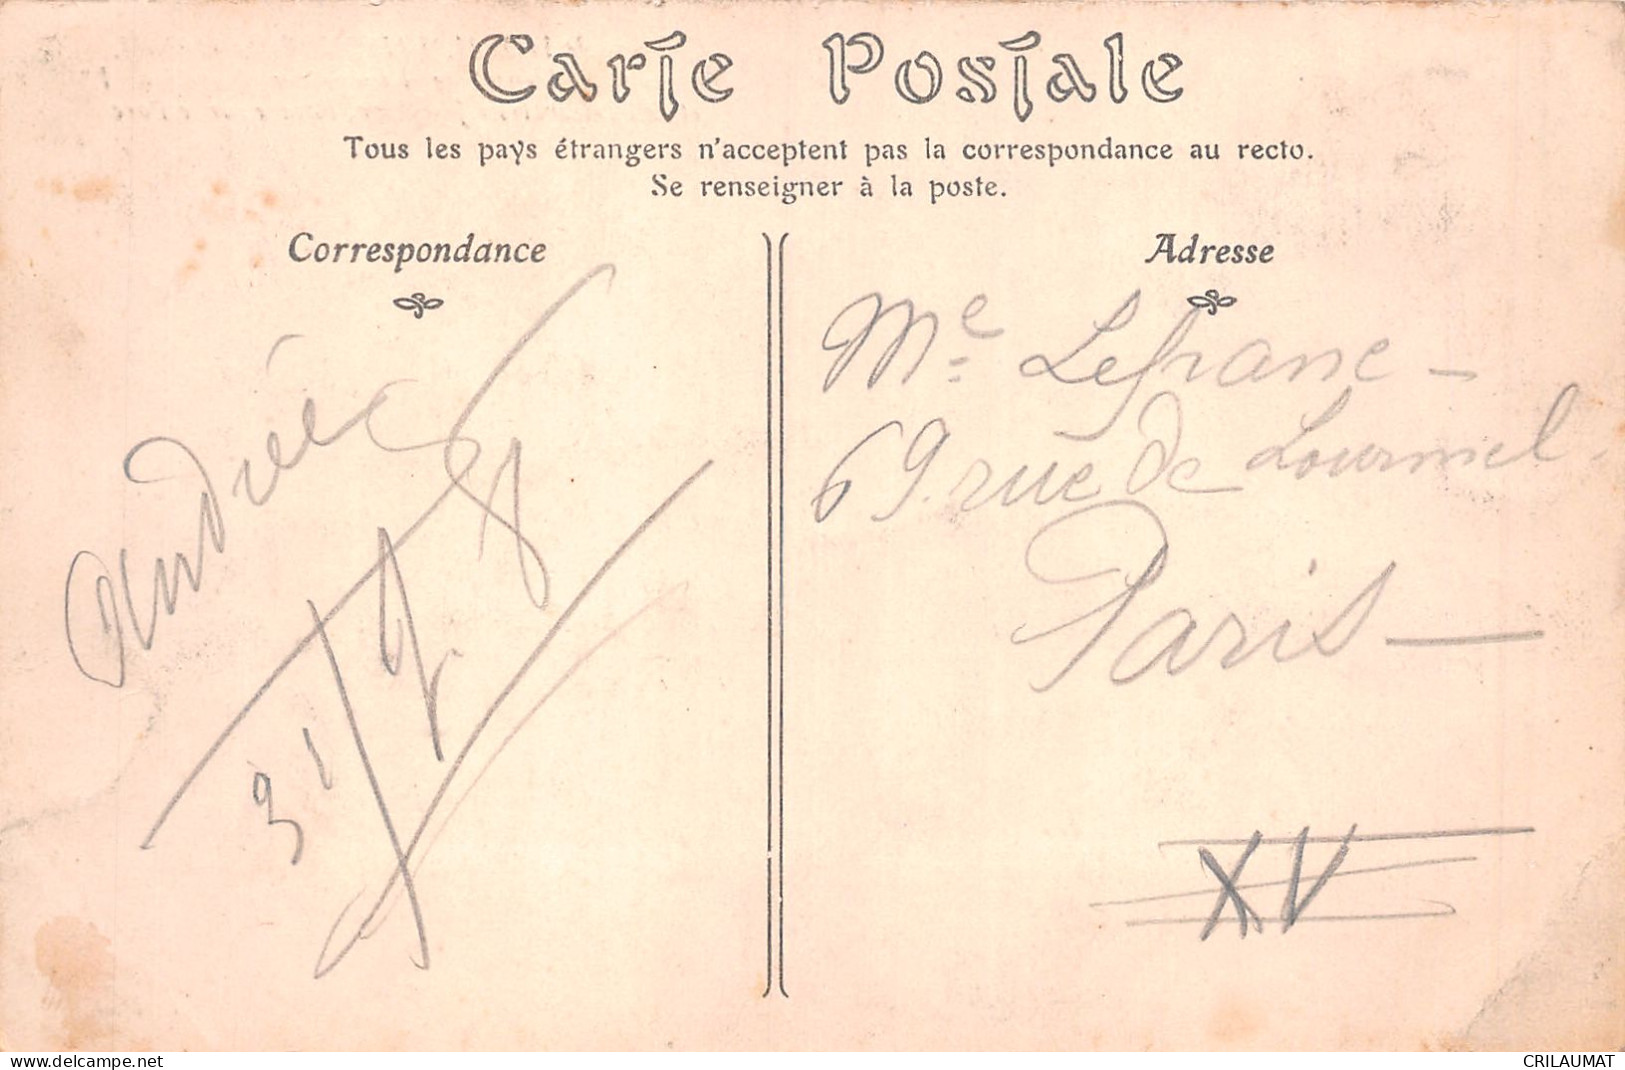 Carte Postale
Tous les pays étrangers n'acceptent pas la correspondance au recto.
Se renseigner à la poste.
Correspondance
Adresse
Andrée
31/7/8
Me Lefranc –
69 rue de Lourmel.
Paris —
XV
www.delcampe.net
CRILAUMAT